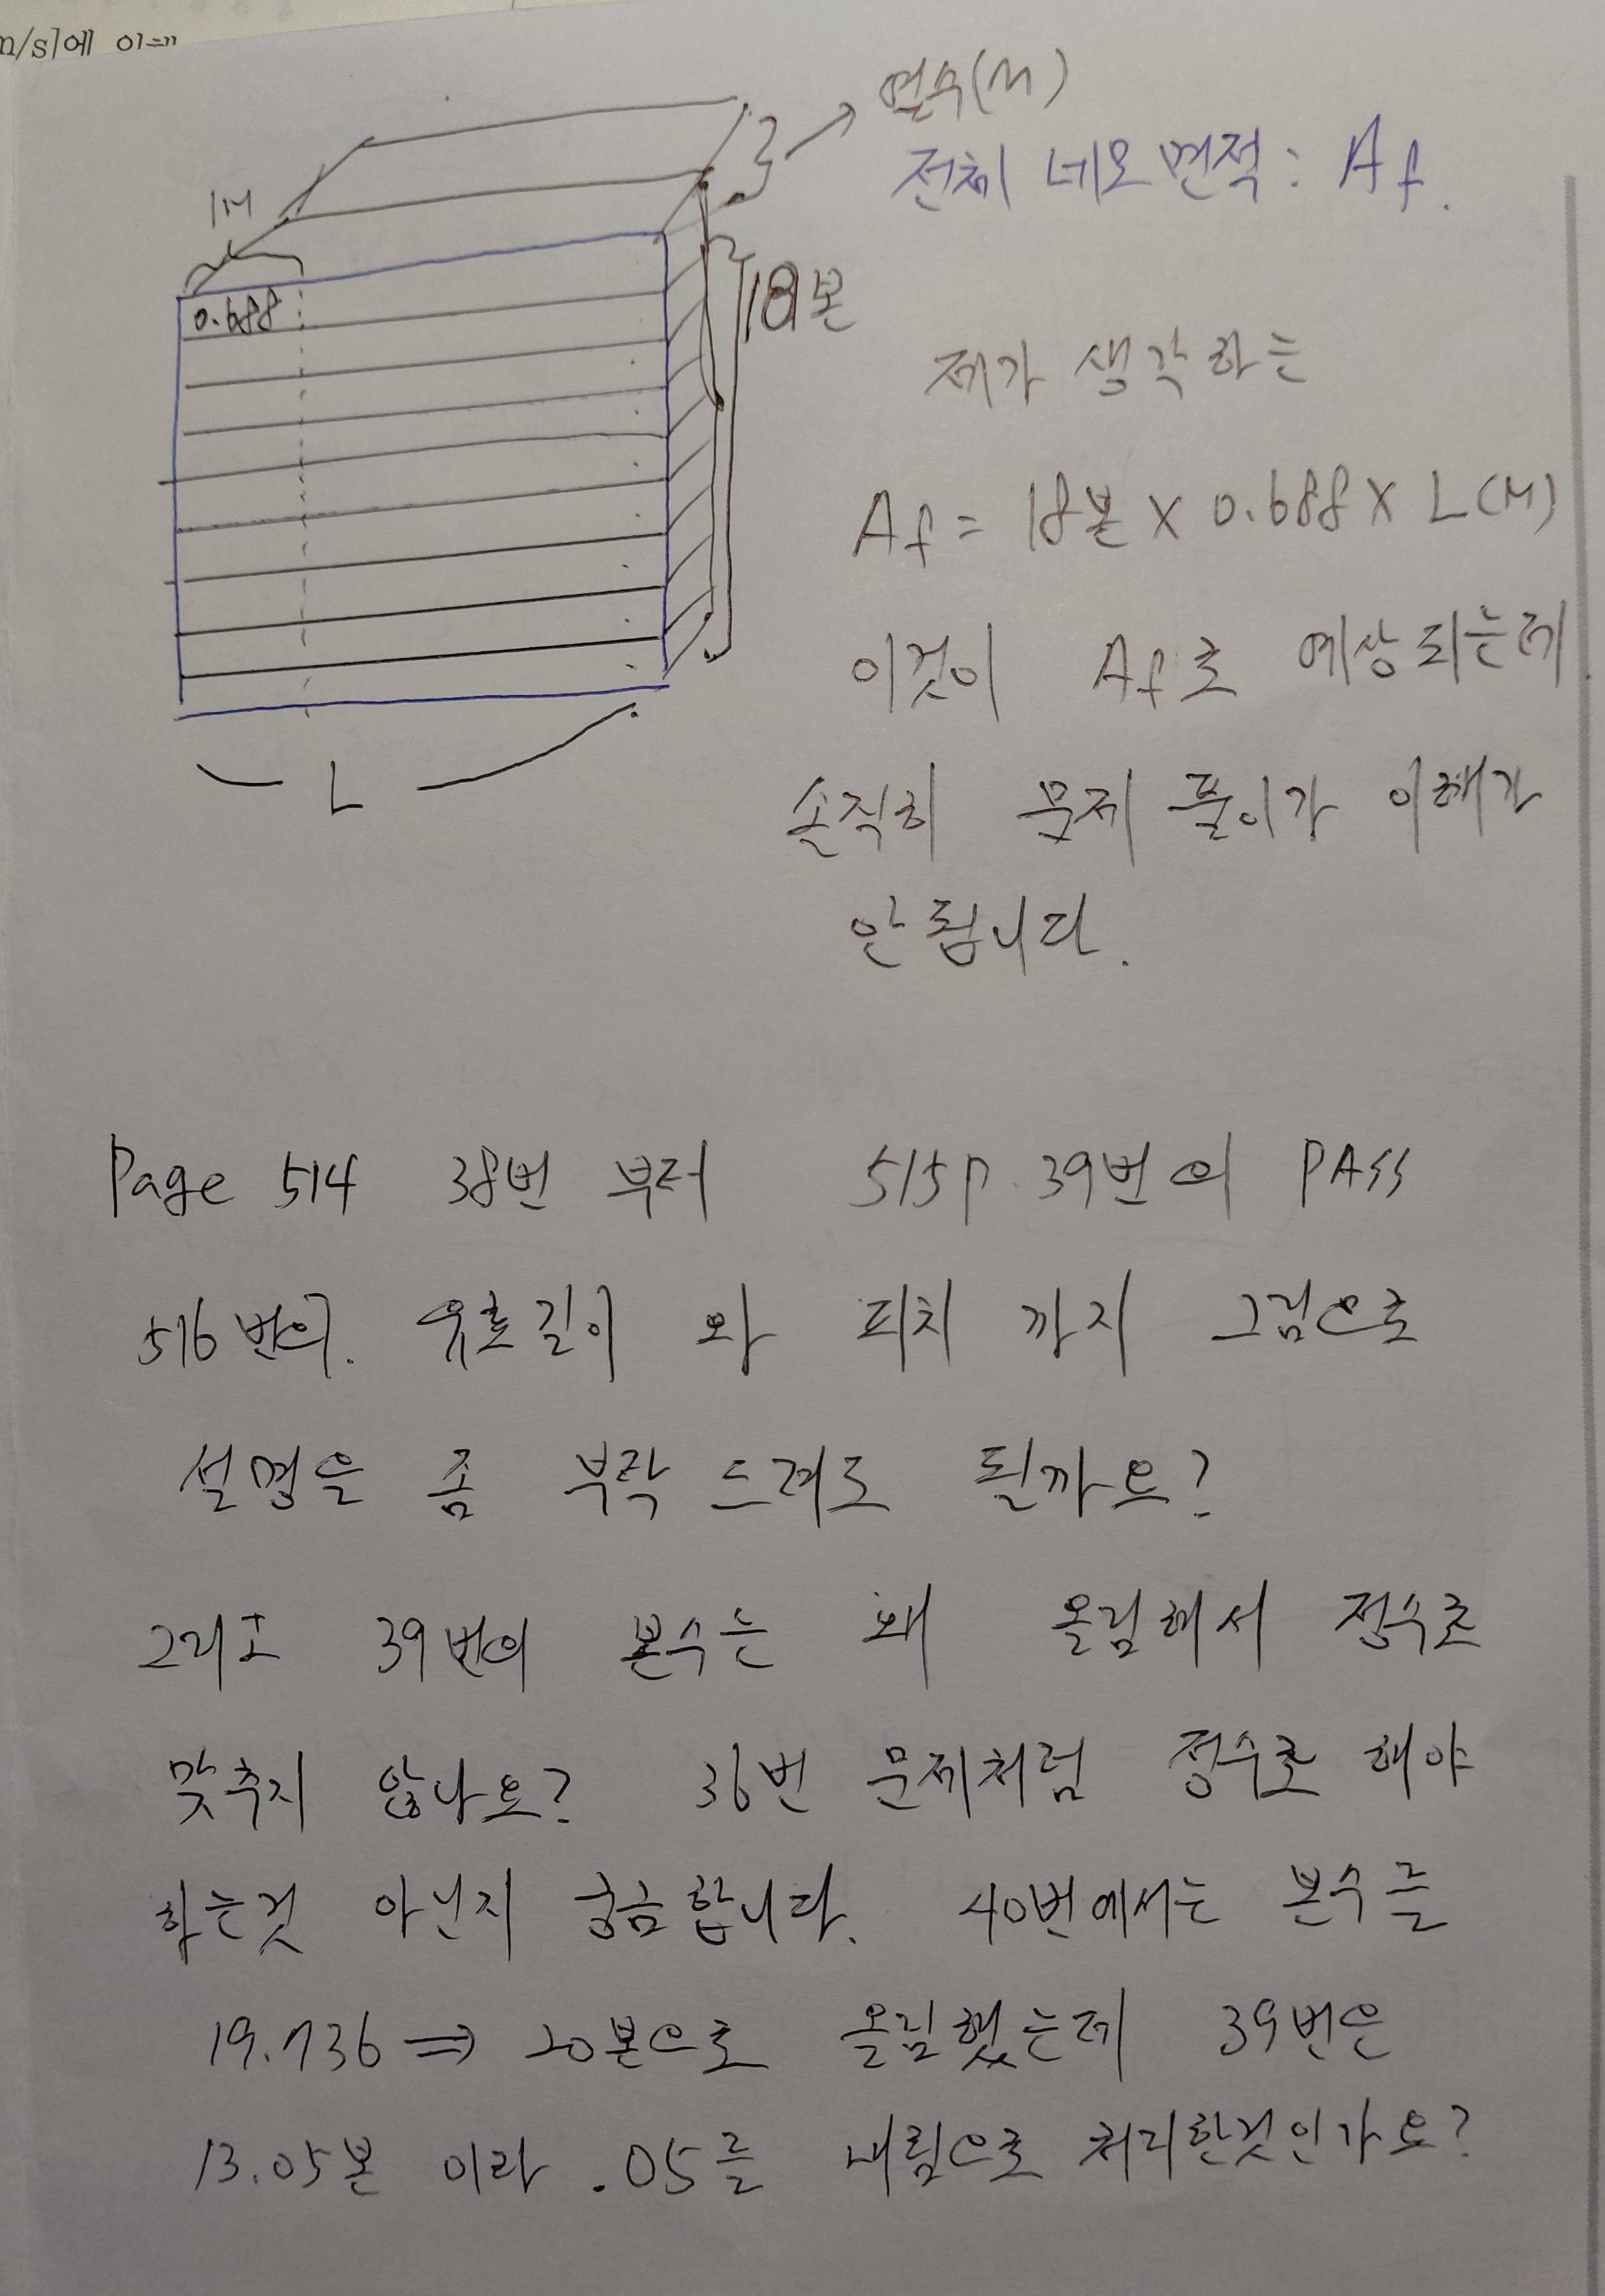 m/s]에
열수(M)
전체 네모 면적: Af.
1M
0.688
18본
제가 생각하는
Af = 18본 X 0.688 X L(M)
이것이 Af로 예상되는데
솔직히 문제 풀이가 이해가
안됩니다.
L
Page 514 38번 부터 515P. 39번의 PASS
516번의. 유효길이 와 피치 까지 그림으로
설명을 좀 부탁 드려도 될까요?
그리고 39번의 본수는 왜 올림해서 정수로
맞추지 않나요? 36번 문제처럼 정수로 해야
하는것 아닌지 궁금합니다. 40번에서는 본수를
19.736 ⇒ 20본으로 올림했는데 39번은
13.05본 이라 .05를 내림으로 처리한것인가요?